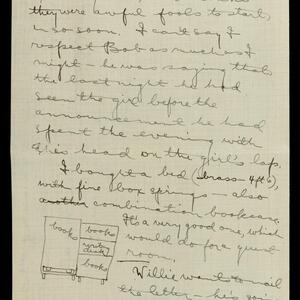 they were awful fools to start
in so soon. I can't say I
respect Bob as much as I
might - he was saying that
the last night he had
seen the girl before the
announcement he had
spent the evening with
his head on the girl's lap.
I bought a bed (brass - 4 ft 6),
with fine box springs - also
another combination bookcase.
It's a very good one, which
would do for a guest
room.
books
books
write
desk
books
Willie went to mail
the letter - he's going